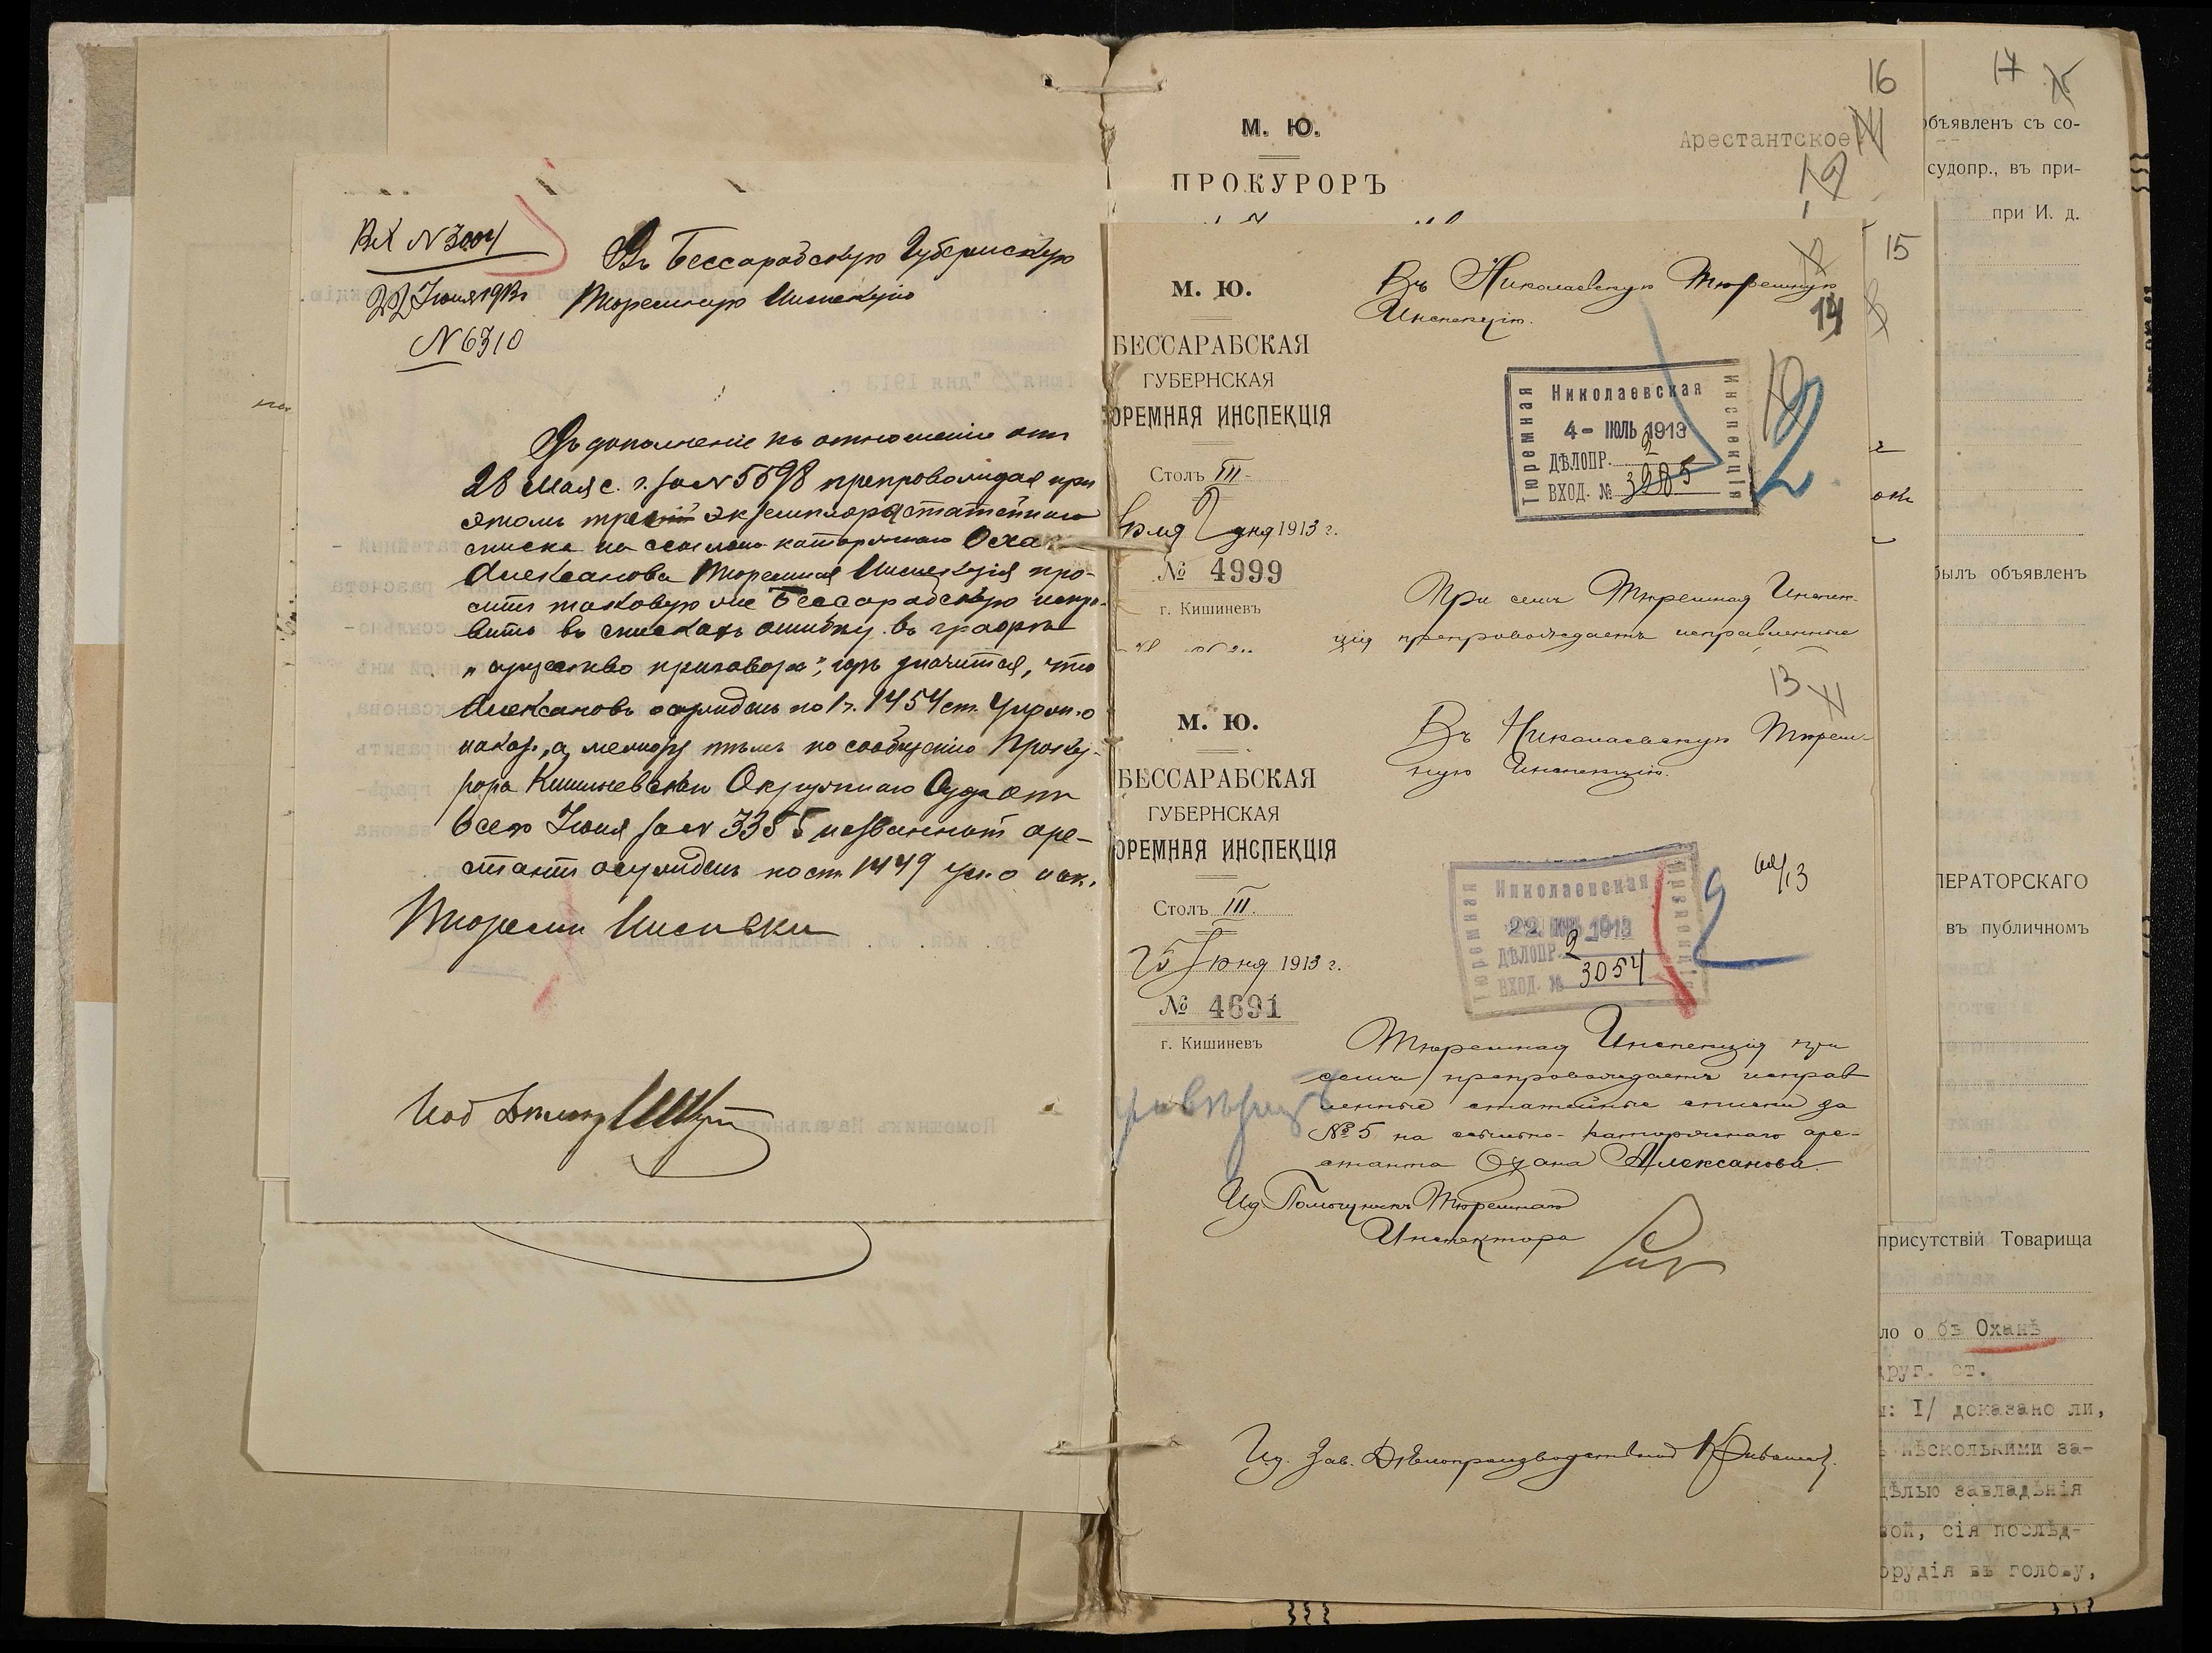 Вх N 3004
22 Іюня 1913 г
N 6310
Въ Бессарабскую Губернскую
Тюремную Инспекцію
Въ дополненіе къ отношенію отъ
28 Мая с. г. за N 5598 препровождая при
этомъ экземпляра статейнаго
списка на ссыльно каторжнаго Оха
Алексанова Тюремная Инспекція про-
ситъ таковую же Бессарабскую испра-
вить въ спискахъ ошибку въ графѣ
„существо приговора", гдѣ значится, что
Алексановъ осужденъ по 1 ч. 1454 ст. Улож. о
наказ., а между тѣмъ по сообщенію Проку-
рора Кишиневскаго Окружнаго Суда отъ
6 сего Іюня за N 3355 названный аре-
стантъ осужденъ по ст. 1449 ул. о нак.
Тюремн Инспек
М. Ю.
ПРОКУРОРЪ
Арестантское
16
М. Ю.
БЕССАРАБСКАЯ
ГУБЕРНСКАЯ
ОРЕМНАЯ ИНСПЕКЦІЯ
Столъ III
юля 2 дня 1913 г.
№ 4999
г. Кишиневъ
Въ Николаевскую Тюремную
Инспекцію.
14
15
Николаевская
Тюремная
Инспекція
4 - ІЮЛЬ 1913
ДѢЛОПР. 2
ВХОД. № 3285
2
При семъ Тюремная Инспек-
ція препровождаетъ исправленные
М. Ю.
БЕССАРАБСКАЯ
ГУБЕРНСКАЯ
ОРЕМНАЯ ИНСПЕКЦІЯ
Столъ III.
25 Іюня 1913 г.
№ 4691
г. Кишиневъ
13
Въ Николаевскую Тюрем-
ную Инспекцію.
Николаевская
Тюремная
Инспекція
1913
ДѢЛОПР. 2
ВХОД. № 3054
2
Тюремная Инспекція при
семъ препровождаетъ исправ
ленные статейные списки за
№ 5 на ссыльно-каторжнаго аре-
станта Охана Алексанова.
Ид Помощникъ Тюремнаго
Инспектора
И. д. Зав. Дѣлопроизводствомъ
17
объявленъ съ со-
судопр., въ при-
при И. д.
былъ объявленъ
ПЕРАТОРСКАГО
въ публичномъ
присутствій Товарища
ло о бъ Оханѣ
друг. ст.
: I/ доказано ли,
нѣсколькими за-
цѣлью завладѣнія
ой, сія послѣд-
орудія въ голову,